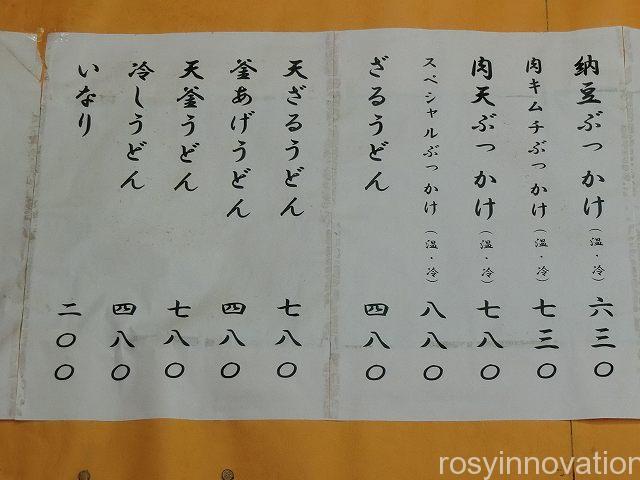 納豆ぶっかけ（温・冷）六三〇
肉キムチぶっかけ（温・冷）七三〇
肉天ぶっかけ（温・冷）七八〇
スペシャルぶっかけ（温・冷）八八〇
ざるうどん 四八〇
天ざるうどん 七八〇
釜あげうどん 四八〇
天釜うどん 七八〇
冷しうどん 四八〇
いなり 二〇〇
rosyinnovation